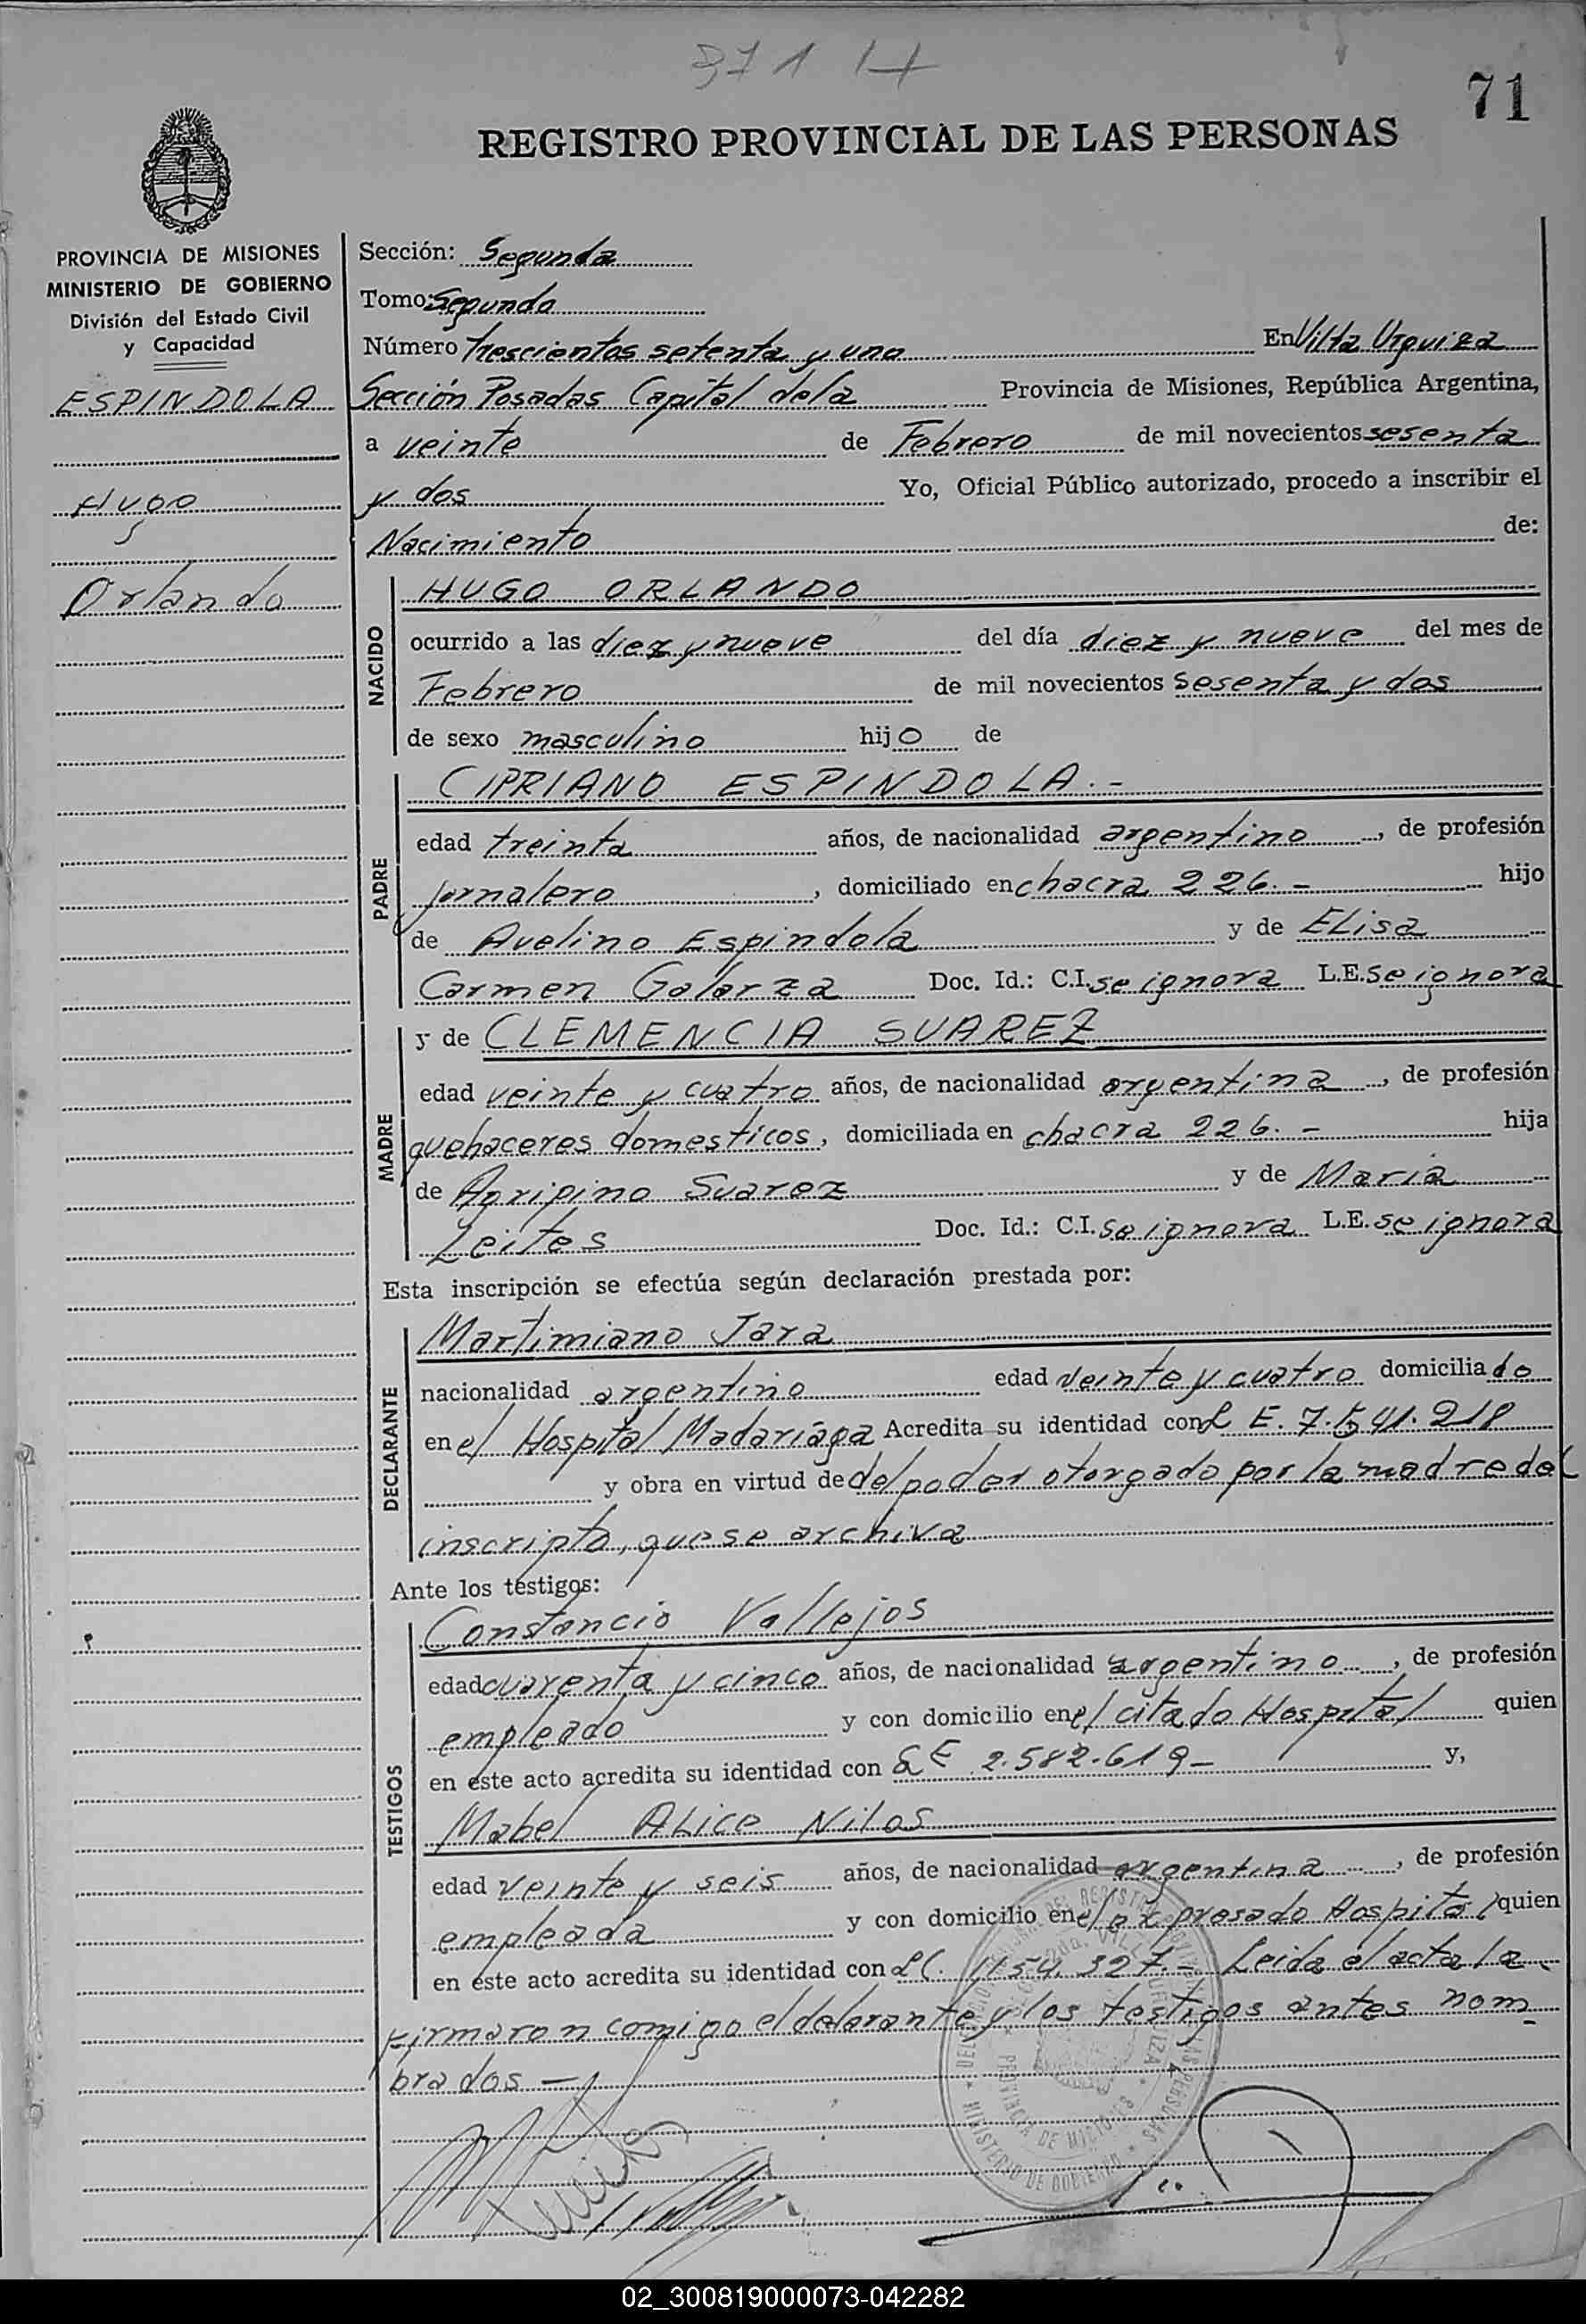 371 H
71
REGISTRO PROVINCIAL DE LAS PERSONAS
PROVINCIA DE MISIONES
MINISTERIO DE GOBIERNO
División del Estado Civil
y Capacidad
ESPINDOLA
Hugo
Orlando
Sección: Segunda
Tomo: Segundo
Número trescientos setenta y uno En Villa Urquiza
Sección Posadas Capital de la Provincia de Misiones, República Argentina,
a veinte de Febrero de mil novecientos sesenta
y dos Yo, Oficial Público autorizado, procedo a inscribir el
Nacimiento de:
NACIDO
HUGO ORLANDO
ocurrido a las diez y nueve del día diez y nueve del mes de
Febrero de mil novecientos sesenta y dos
de sexo masculino hijo de
PADRE
CIPRIANO ESPINDOLA.-
edad treinta años, de nacionalidad argentino, de profesión
jornalero, domiciliado en chacra 226.- hijo
de Avelino Espindola y de Elisa
Carmen Galarza Doc. Id.: C.I. se ignora L.E. se ignora
MADRE
y de CLEMENCIA SUAREZ
edad veinte y cuatro años, de nacionalidad argentina, de profesión
quehaceres domesticos, domiciliada en chacra 226.- hija
de Agripino Suarez y de Maria
Leites Doc. Id.: C.I. se ignora L.E. se ignora
Esta inscripción se efectúa según declaración prestada por:
DECLARANTE
Martimiano Jara
nacionalidad argentino edad veinte y cuatro domiciliado
en el Hospital Madariaga Acredita su identidad con L E. 7.541.218
y obra en virtud de del poder otorgado por la madre del
inscripto, que se archiva
Ante los testigos:
TESTIGOS
Constancio Vallejos
edad cuarenta y cinco años, de nacionalidad argentino, de profesión
empleado y con domicilio en el citado Hospital quien
en este acto acredita su identidad con L E 2.582.619- y,
Mabel Alice Nilos
edad veinte y seis años, de nacionalidad argentina, de profesión
empleada y con domicilio en el expresado Hospital quien
en este acto acredita su identidad con LC. 1154.327.- Leida el acta la
firmaron comigo el delarante y los testigos antes nom
brados -
PROVINCIA DE MISIONES
MINISTERIO DE GOBIERNO
02_300819000073-042282